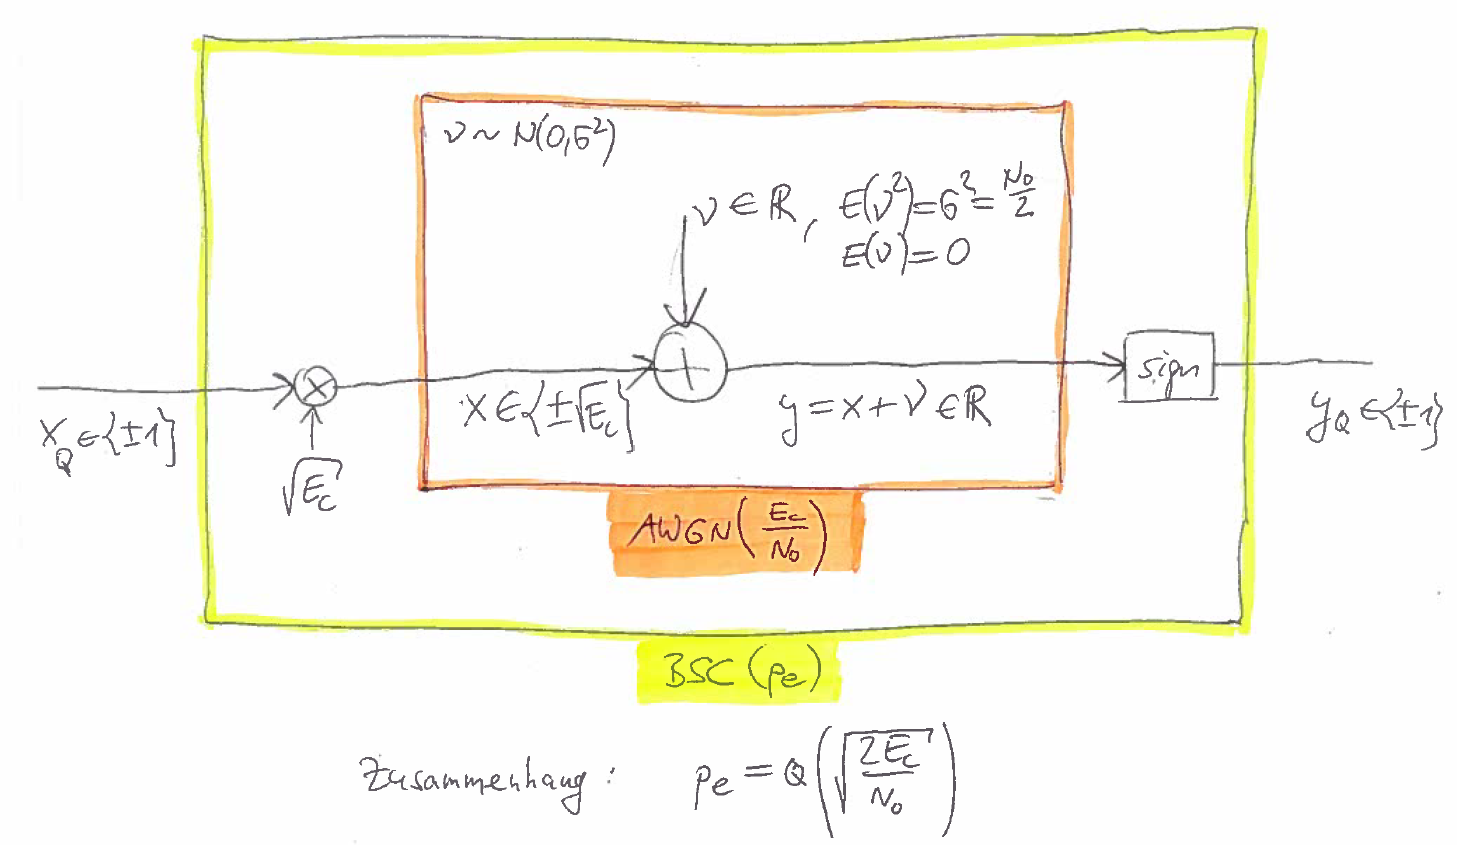 ν ~ N(0,σ²)
ν ∈ ℝ, E(ν²)=σ²=N₀/2
E(ν)=0
sign
x_Q ∈ {±1}
√E_c
x ∈ {±√E_c}
y = x + ν ∈ ℝ
y_Q ∈ {±1}
AWGN(E_c/N₀)
BSC(p_e)
Zusammenhang: p_e = Q(√(2E_c/N₀))